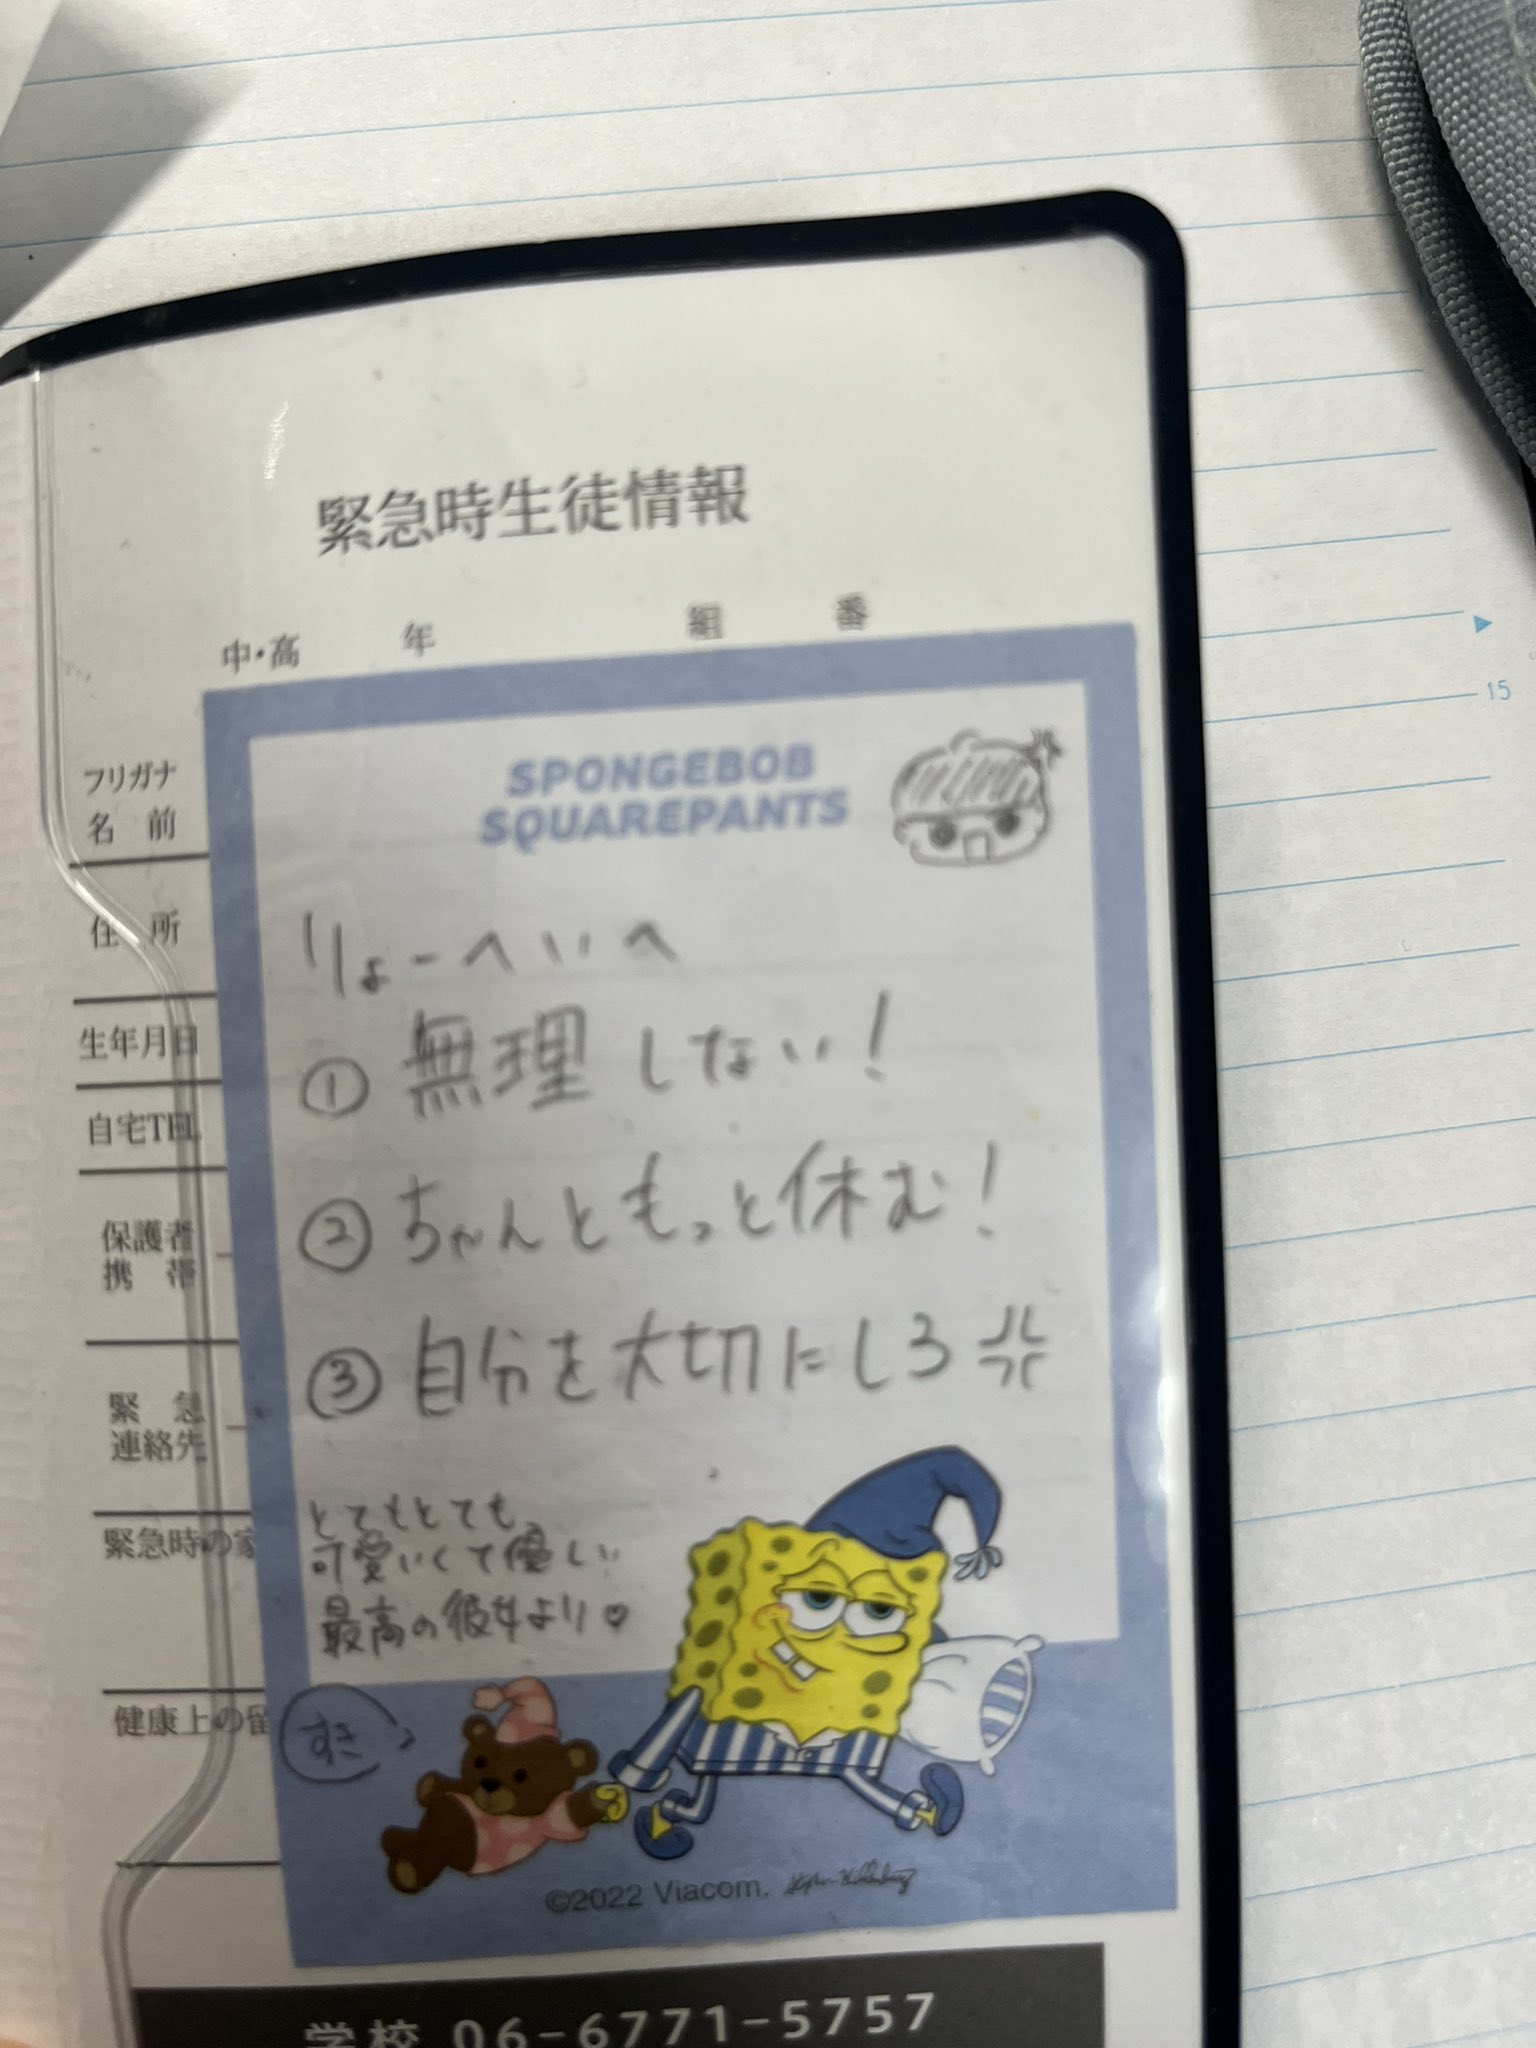 緊急時生徒情報
中・高 年 組 番
フリガナ
名 前
住 所
生年月日
自宅TEL
保護者
携 帯
緊 急
連絡先
緊急時の
健康上の
SPONGEBOB
SQUAREPANTS
りょーへいへ
① 無理しない！
② ちゃんともっと休む！
③ 自分を大切にしろ
とてもとても
可愛いくて優しい
最高の彼女より♡
すき
©2022 Viacom.
学校 06-6771-5757
15